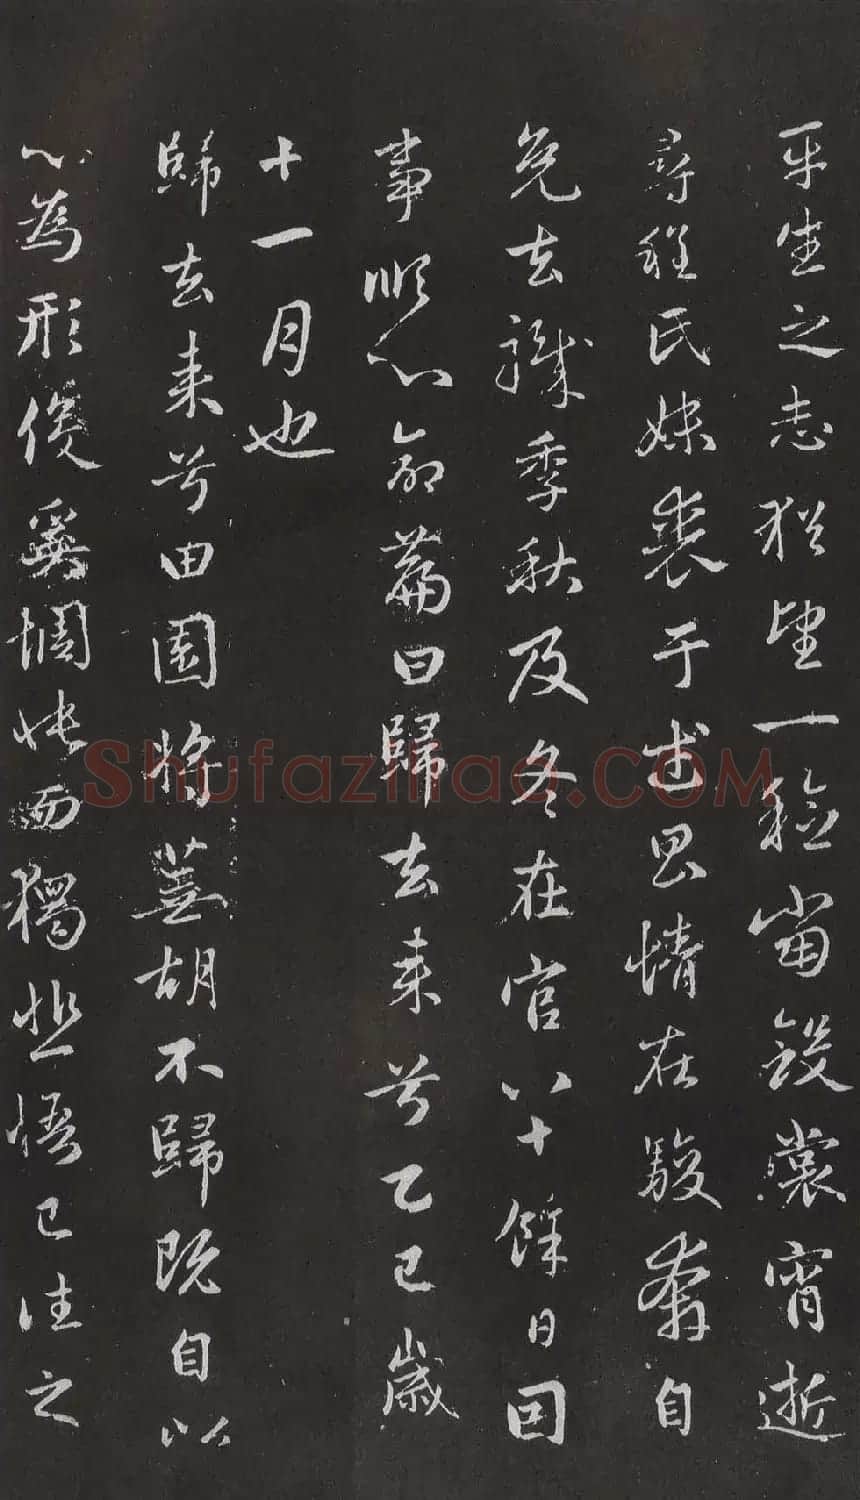 平生之志猶望一稔當斂裳宵逝
尋程氏妹喪于武昌情在駿奔自
免去職季秋及冬在官八十餘日因
事順心命篇曰歸去来兮乙巳歲
十一月也
歸去来兮田園將蕪胡不歸既自以
心為形役奚惆悵而獨悲悟已往之
Shufaziliao.COM